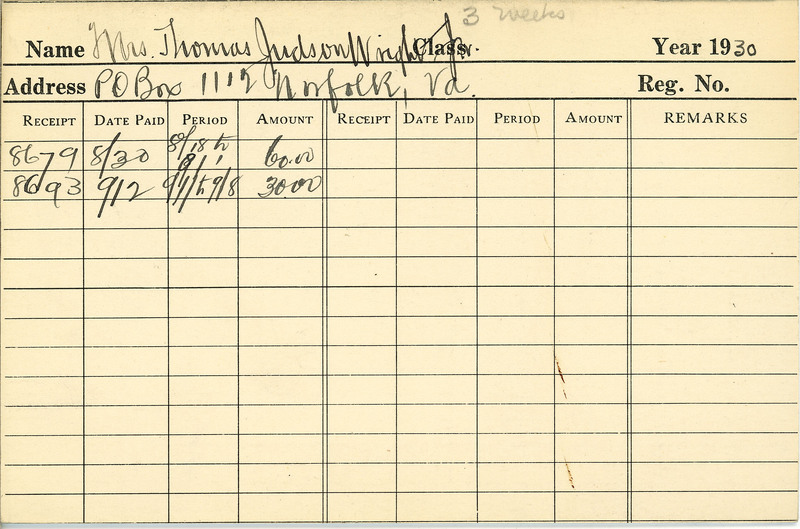 3 weeks
Name Mrs. Thomas Judson Wright Jr. Class Year 1930
Address PO Box 1112 Norfolk, Va. Reg. No.
RECEIPT DATE PAID PERIOD AMOUNT RECEIPT DATE PAID PERIOD AMOUNT REMARKS
8679 8/30 8/18 to 9/1 60.00
8693 9/2 9/1 to 9/8 30.00